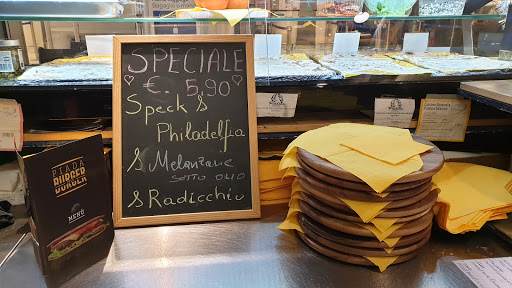 SPECIALE
♡ €. 5,90 ♡
Speck &
Philadelfia
& Melanzane
SOTTO OLIO
& Radicchio
PIADA
BURGER
MENÙ